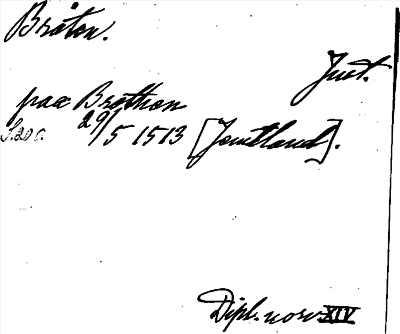 Bråten.
Just.
paa Brothon
29/5 1513 [Jemtland].
Dipl. norv. XIV